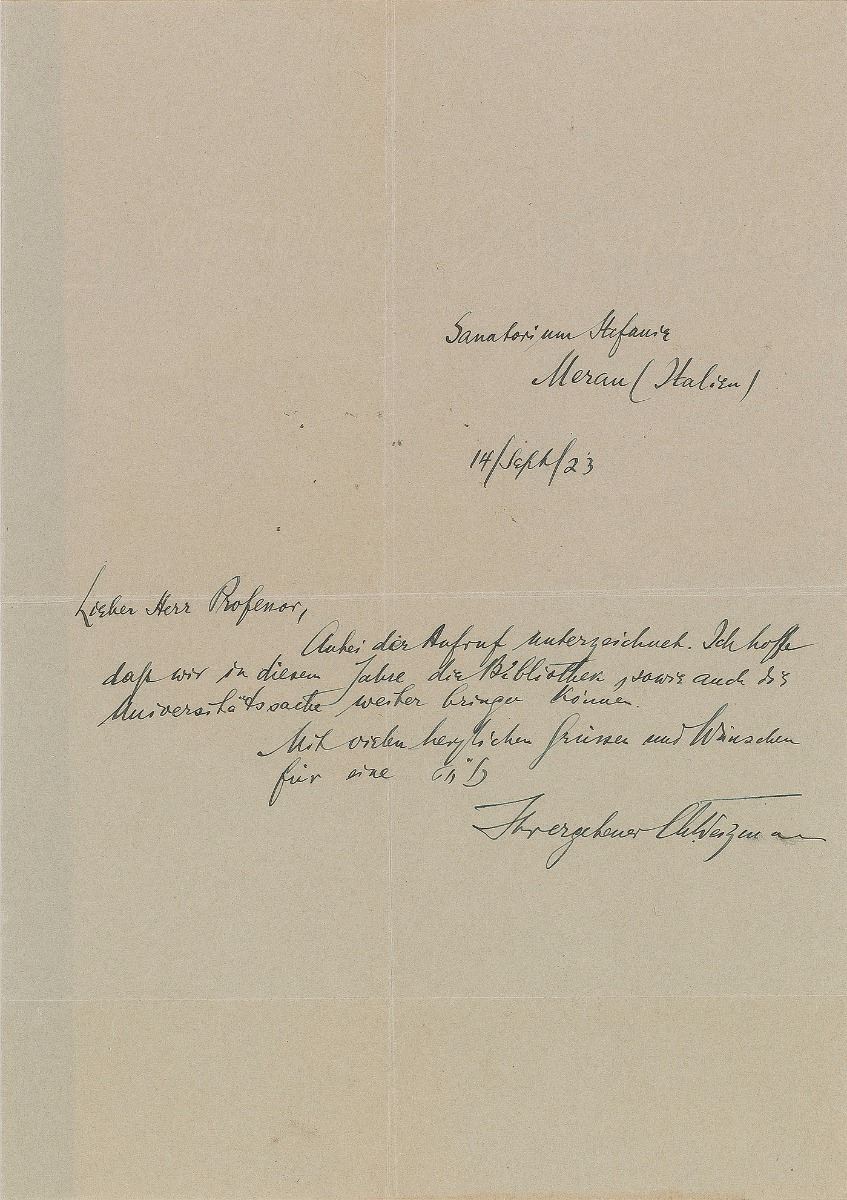 Sanatorium Stefanie
Meran (Italien)
14/Sept/23
Lieber Herr Professor,
Anbei der Aufruf unterzeichnet. Ich hoffe
daß wir in diesem Jahre die Bibliothek, sowie auch die
Universitätssache weiter bringen können.
Mit vielen herzlichen Grüssen und Wünschen
für eine
Ihr ergebener Ch. Weizmann